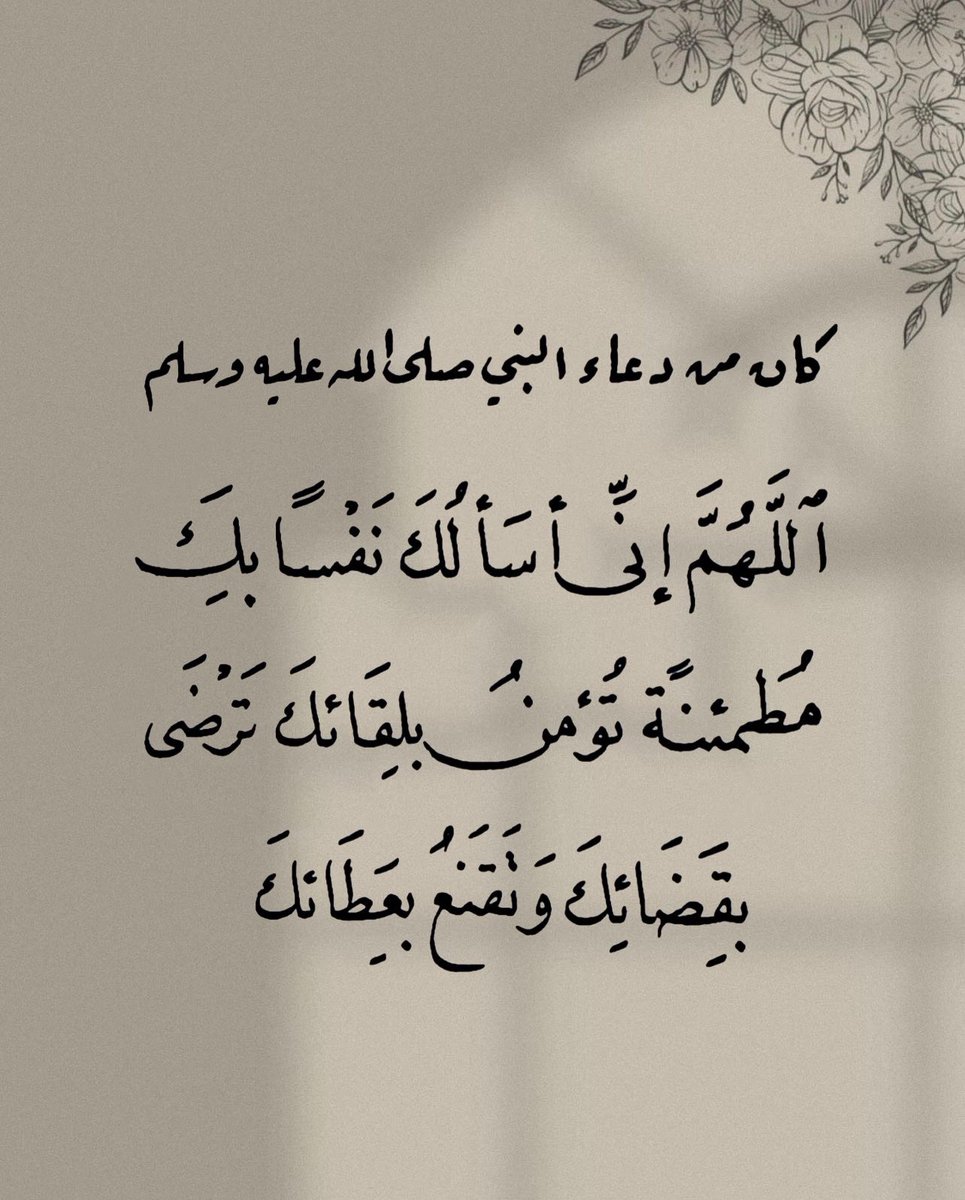 كان من دعاء النبي صلى الله عليه وسلم
ٱللَّهُمَّ إِنِّى أسَألُكَ نَفْسًا بِكَ
مُطمئنةً تُؤمنُ بلِقَائكَ تَرْضَى
بِقَِضَائِكَ وَتَقَنعُ بعَِطَائكَ